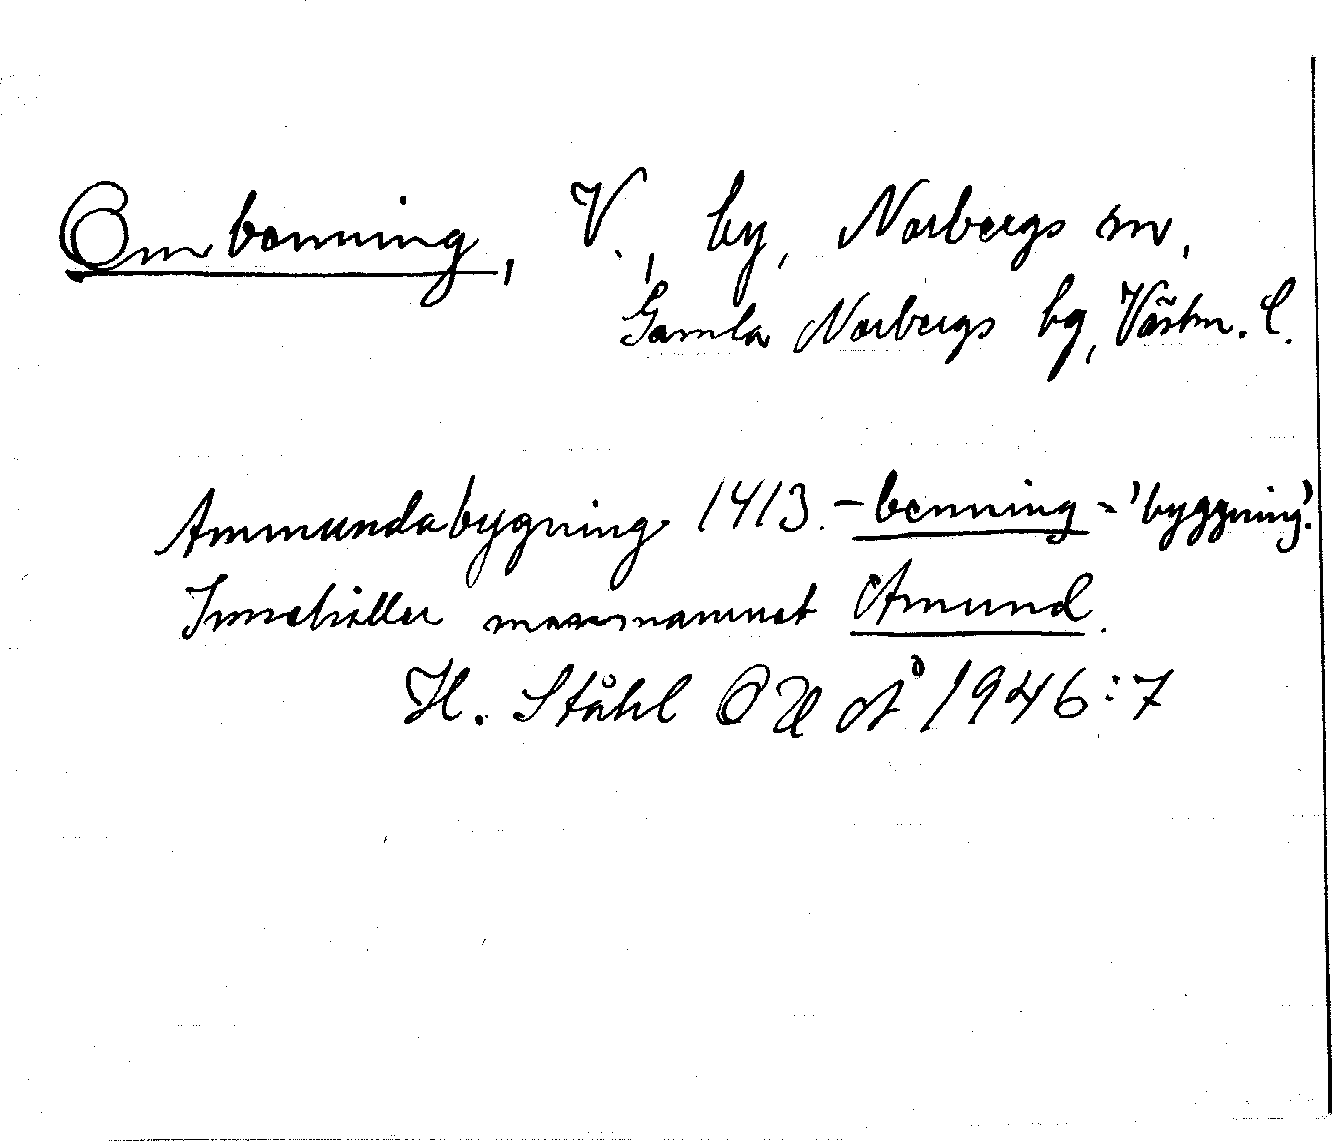 Ombenning, V., by, Norbergs sn,
Gamla Norbergs bg, Västm. l.
Ammundabygning 1413. -benning - 'byggning'.
Innehåller mansnamnet Amund.
H. Ståhl OUÅ 1946:7